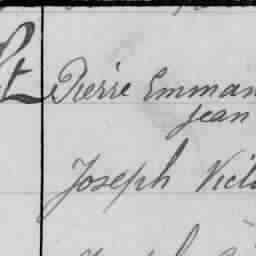 Pierre Emman
Jean
Joseph Vict